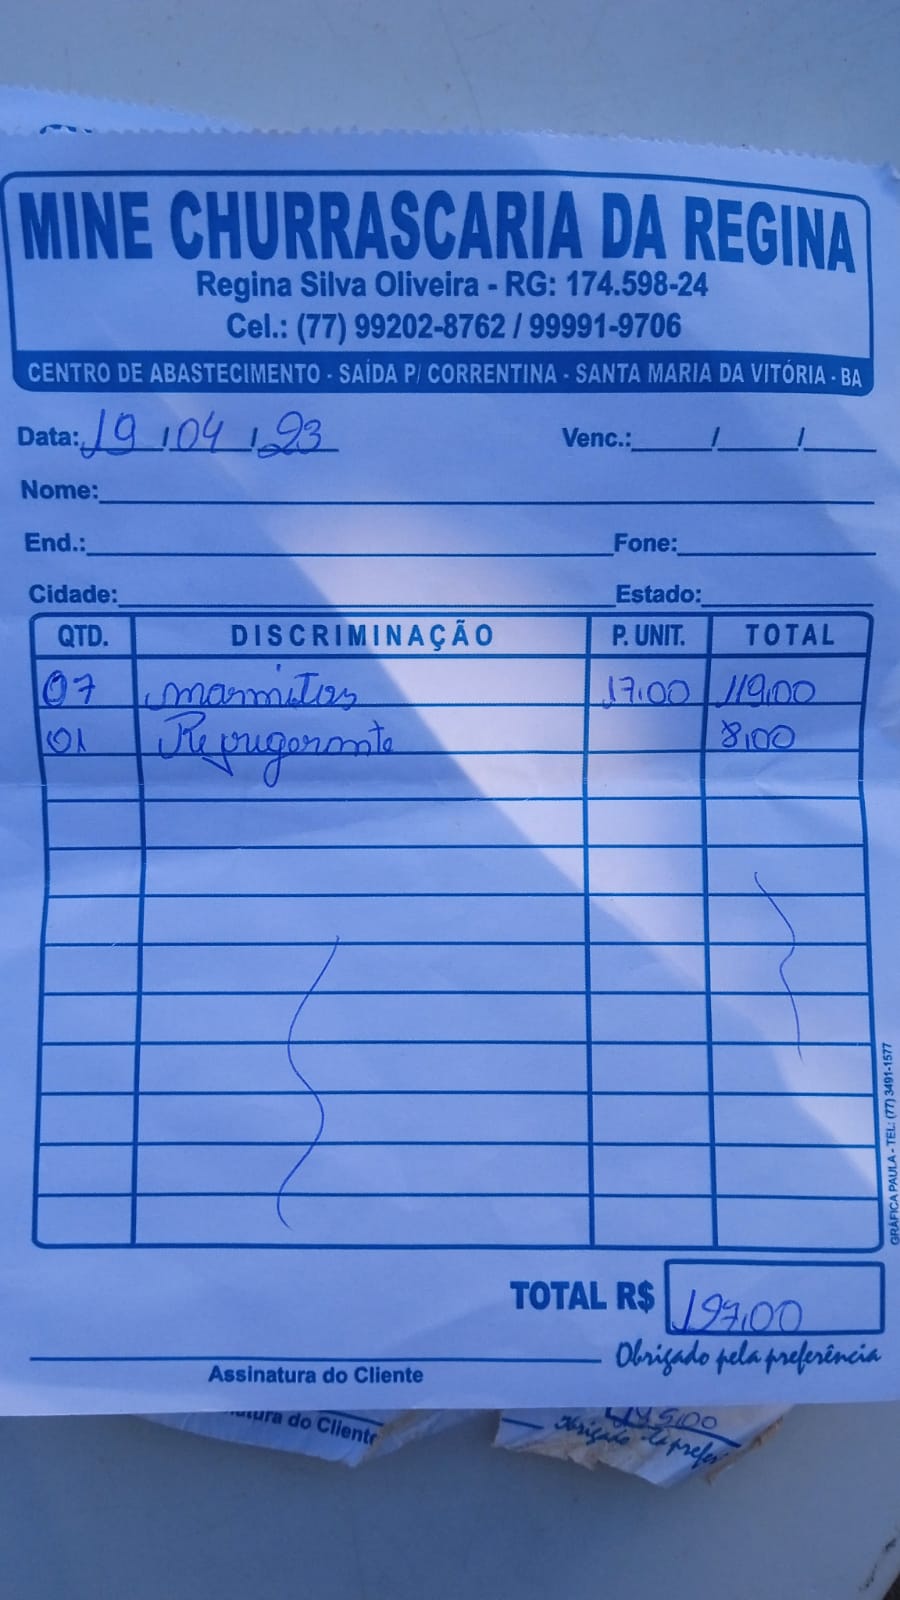 MINE CHURRASCARIA DA REGINA
Regina Silva Oliveira - RG: 174.598-24
Cel.: (77) 99202-8762 / 99991-9706
CENTRO DE ABASTECIMENTO - SAÍDA P/ CORRENTINA - SANTA MARIA DA VITÓRIA - BA
Data: 19 / 04 / 23 Venc.: / /
Nome:
End.: Fone:
Cidade: Estado:
QTD. DISCRIMINAÇÃO P. UNIT. TOTAL
07 marmitas 17,00 119,00
01 Refrigerante 8,00
GRÁFICA PAULA - TEL: (77) 3491-1577
TOTAL R$ 127,00
Obrigado pela preferência
Assinatura do Cliente
do Cliente
Obrigado